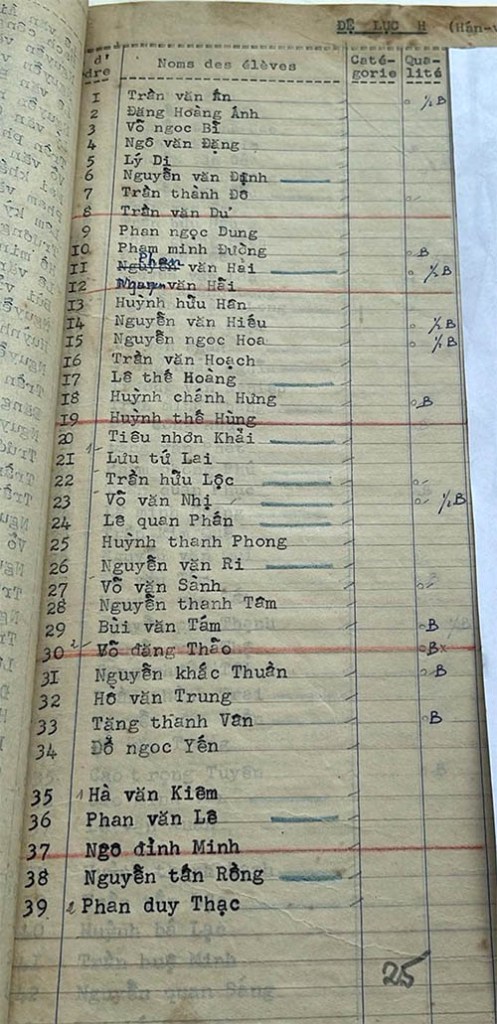 ĐỆ LỤC H (Hán-v
d'
dre Noms des élèves Caté-
gorie Qua-
lité
1 Trần văn Ấn ½ B
2 Đặng Hoàng Ánh
3 Võ ngọc Bỉ
4 Ngô văn Đặng
5 Lý Dị
6 Nguyễn văn Định
7 Trần thành Đô
8 Trần văn Dư
9 Phan ngọc Dung
10 Phạm minh Đường B
11 Nguyễn Phan văn Hải ½ B
12 Nguyễn văn Hải
13 Huỳnh hữu Hân
14 Nguyễn văn Hiếu ½ B
15 Nguyễn ngọc Hoa ½ B
16 Trần văn Hoạch
17 Lê thế Hoàng
18 Huỳnh chánh Hưng B
19 Huỳnh thế Hùng
20 Tiêu nhơn Khải
21 1 Lưu tứ Lai
22 Trần hữu Lộc
23 Võ văn Nhị ½ B
24 Lê quan Phán
25 Huỳnh thanh Phong
26 Nguyễn văn Ri
27 Võ văn Sành
28 Nguyễn thanh Tâm
29 Bùi văn Tám B
30 2 Võ đăng Thão Bx
31 Nguyễn khắc Thuần B
32 Hồ văn Trung
33 Tăng thanh Vân B
34 Đỗ ngọc Yến
35 1 Hà văn Kiêm
36 Phan văn Lê
37 Ngô đình Minh
38 Nguyễn tấn Rồng
39 2 Phan duy Thạc
25